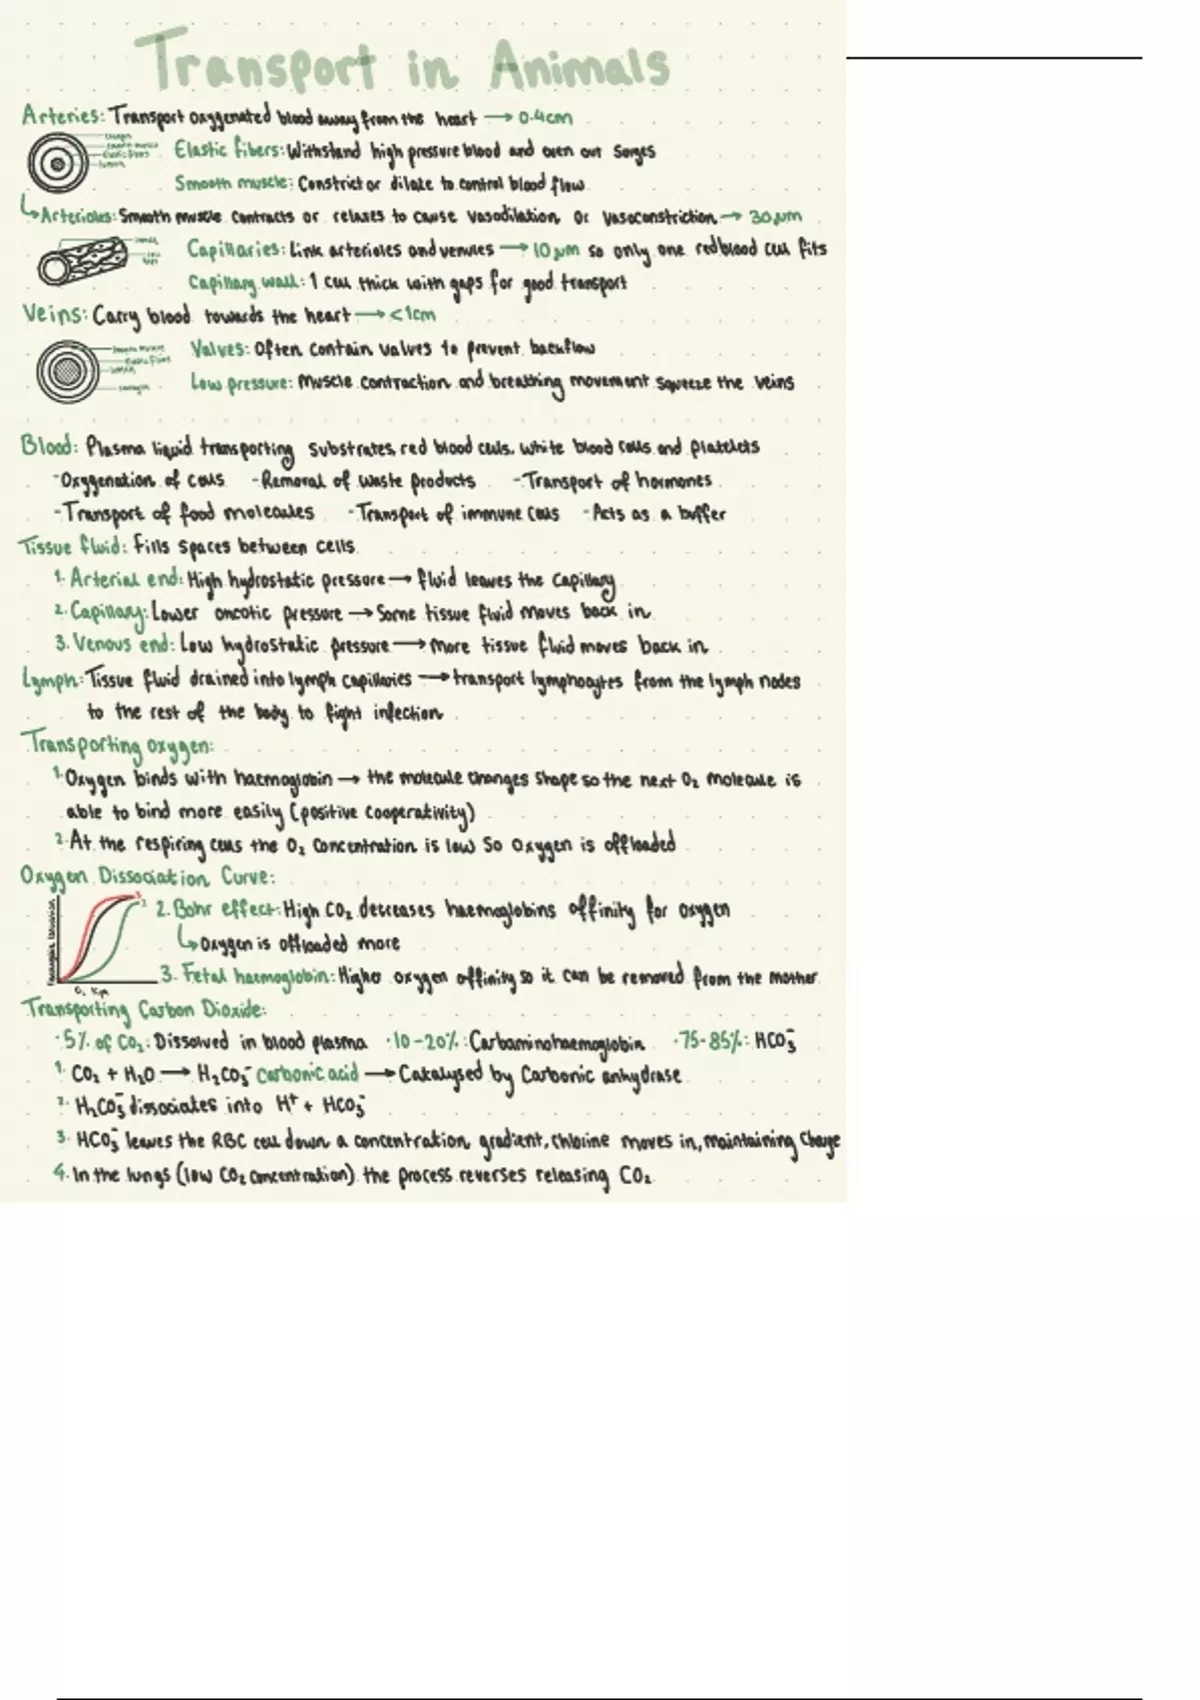 Transport in Animals
Arteries: Transport oxygenated blood away from the heart → 0.4cm
Elastic fibers: Withstand high pressure blood and even out surges
Smooth muscle: Constrict or dilate to control blood flow
↳ Arterioles: Smooth muscle contracts or relaxes to cause vasodilation or vasoconstriction → 30μm
Capillaries: Link arterioles and venules → 10μm so only one red blood cell fits
Capillary wall: 1 cell thick with gaps for good transport
Veins: Carry blood towards the heart → <1cm
Valves: Often contain valves to prevent backflow
Low pressure: Muscle contraction and breathing movement squeeze the veins
Blood: Plasma liquid transporting substrates, red blood cells, white blood cells and platelets
-Oxygenation of cells -Removal of waste products -Transport of hormones
-Transport of food molecules -Transport of immune cells -Acts as a buffer
Tissue fluid: Fills spaces between cells
1. Arterial end: High hydrostatic pressure → fluid leaves the capillary
2. Capillary: Lower oncotic pressure → Some tissue fluid moves back in
3. Venous end: Low hydrostatic pressure → more tissue fluid moves back in
Lymph: Tissue fluid drained into lymph capillaries → transport lymphocytes from the lymph nodes
to the rest of the body to fight infection
Transporting oxygen:
1. Oxygen binds with haemoglobin → the molecule changes shape so the next O₂ molecule is
able to bind more easily (positive cooperativity)
2. At the respiring cells the O₂ concentration is low so oxygen is offloaded
Oxygen Dissociation Curve:
3
2
2. Bohr effect: High CO₂ decreases haemoglobins affinity for oxygen
↳ Oxygen is offloaded more
3. Fetal haemoglobin: Higher oxygen affinity so it can be removed from the mother
O₂ Kpa
Transporting Carbon Dioxide:
·5% of CO₂: Dissolved in blood plasma ·10-20%: Carbaminohaemoglobin ·75-85%: HCO₃⁻
1. CO₂ + H₂O → H₂CO₃⁻ carbonic acid → Catalysed by Carbonic anhydrase
2. H₂CO₃⁻ dissociates into H⁺ + HCO₃⁻
3. HCO₃⁻ leaves the RBC cell down a concentration gradient, chlorine moves in, maintaining charge
4. In the lungs (low CO₂ concentration) the process reverses releasing CO₂